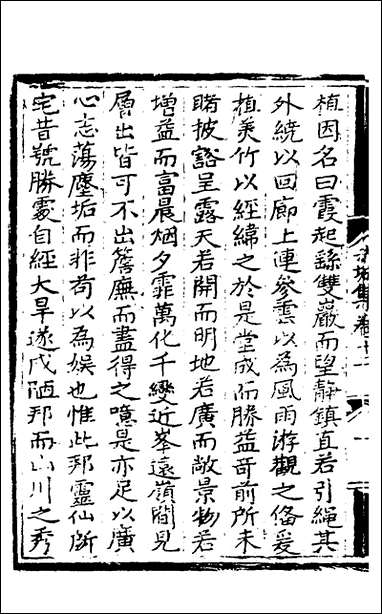 植因名曰霞起繇雙巖而望靜鎮直若引繩其
外繞以回廊上連參雲以為風雨游觀之俻爰
植美竹以經緯之於是堂成而勝益竒前所未
睹披豁呈露天若開而明地若廣而敞景物若
增益而富晨烟夕霏萬化千變近峯遠嶺間見
層出皆可不出簷廡而盡得之噫是亦足以廣
心志蕩塵垢而非苟以為娱也惟此邦靈仙所
宅昔號勝處自經大旱遂成陋邦而山川之秀
集卷十